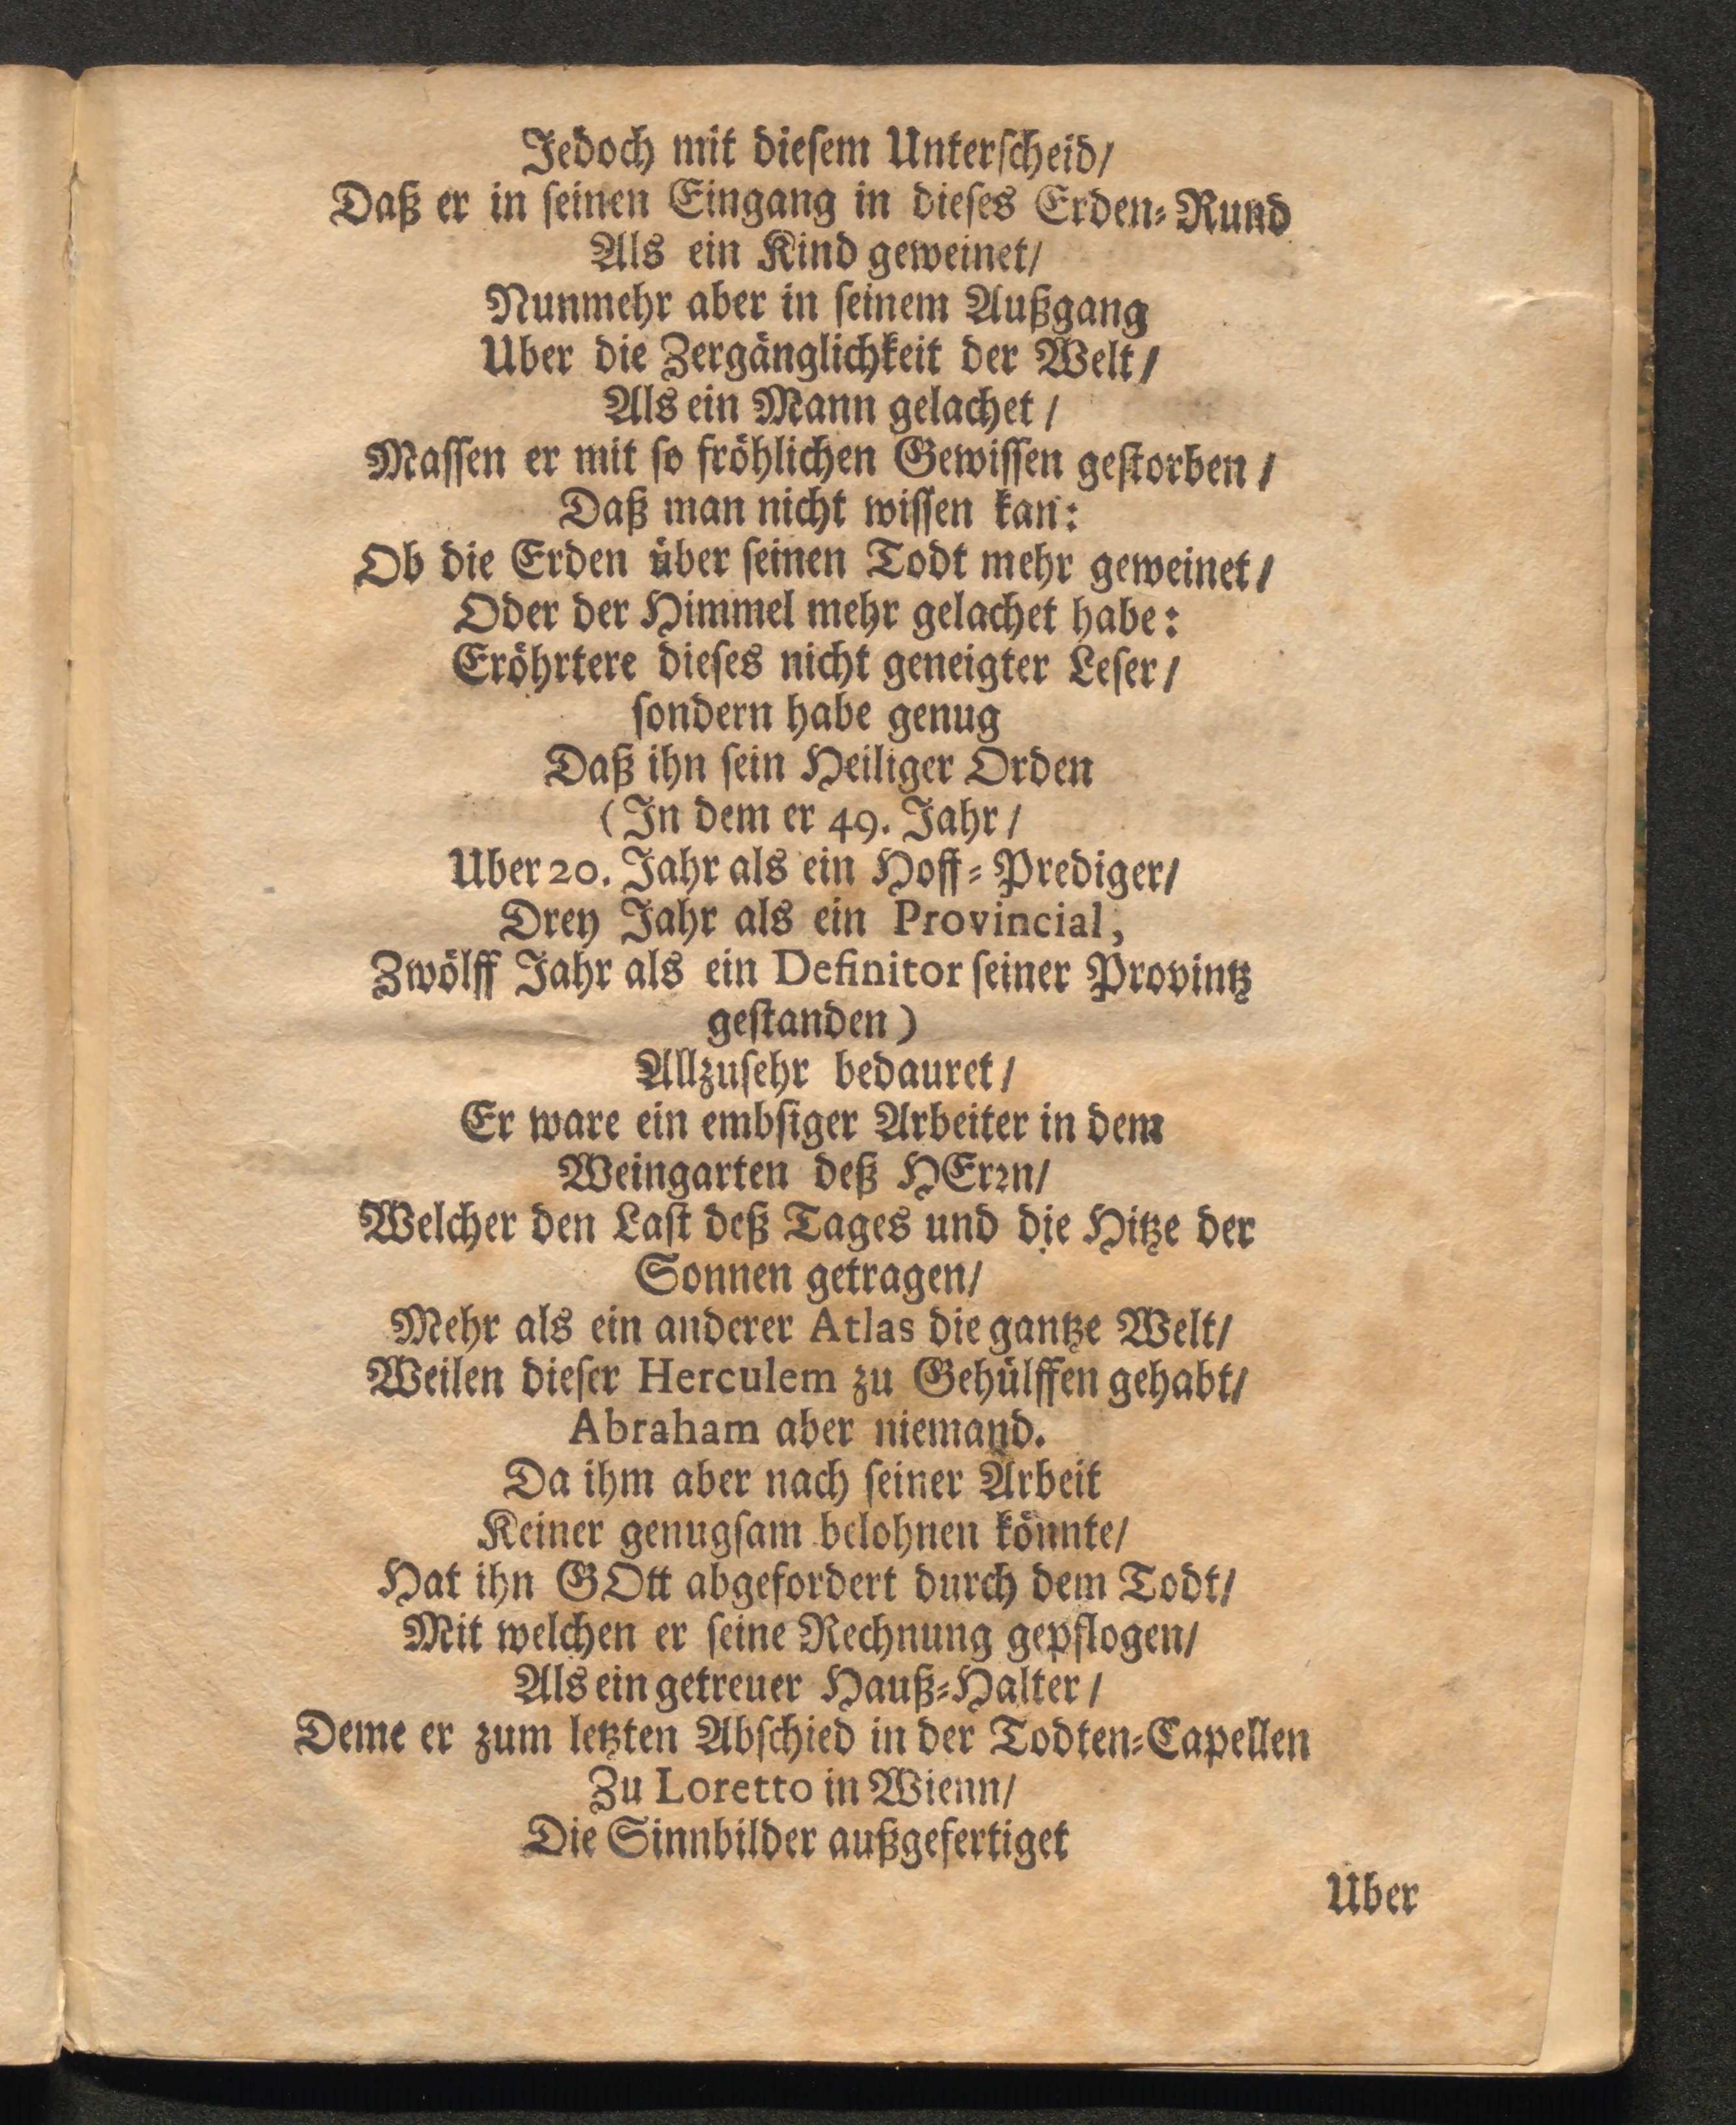 Jedoch mit dieſem Unterſcheid/
Daß er in ſeinen Eingang in dieſes Erden⸗Rund
Als ein Kind geweinet/
Nunmehr aber in ſeinem Außgang
Uber die Zergänglichkeit der Welt/
Als ein Mann gelachet/
Maſſen er mit ſo fröhlichen Gewiſſen geſtorben/
Daß man nicht wiſſen kan:
Ob die Erden über ſeinen Todt mehr geweinet/
Oder der Himmel mehr gelachet habe:
Eröhrtere dieſes nicht geneigter Leſer/
ſondern habe genug
Daß ihn ſein Heiliger Orden
(In dem er 49. Jahr/
Uber 20. Jahr als ein Hoff⸗Prediger/
Drey Jahr als ein Provincial,
Zwölff Jahr als ein Definitor ſeiner Provintz
geſtanden)
Allzuſehr bedauret/
Er ware ein embſiger Arbeiter in dem
Weingarten deß HErꝛn/
Welcher den Laſt deß Tages und die Hitze der
Sonnen getragen/
Mehr als ein anderer Atlas die gantze Welt/
Weilen dieſer Herculem zu Gehülffen gehabt/
Abraham aber niemand.
Da ihm aber nach ſeiner Arbeit
Keiner genugſam belohnen könnte/
Hat ihn GOtt abgefordert durch dem Todt/
Mit welchen er ſeine Rechnung gepflogen/
Als ein getreuer Hauß⸗Halter/
Deme er zum letzten Abſchied in der Todten⸗Capellen
Zu Loretto in Wienn/
Die Sinnbilder außgefertiget
Uber